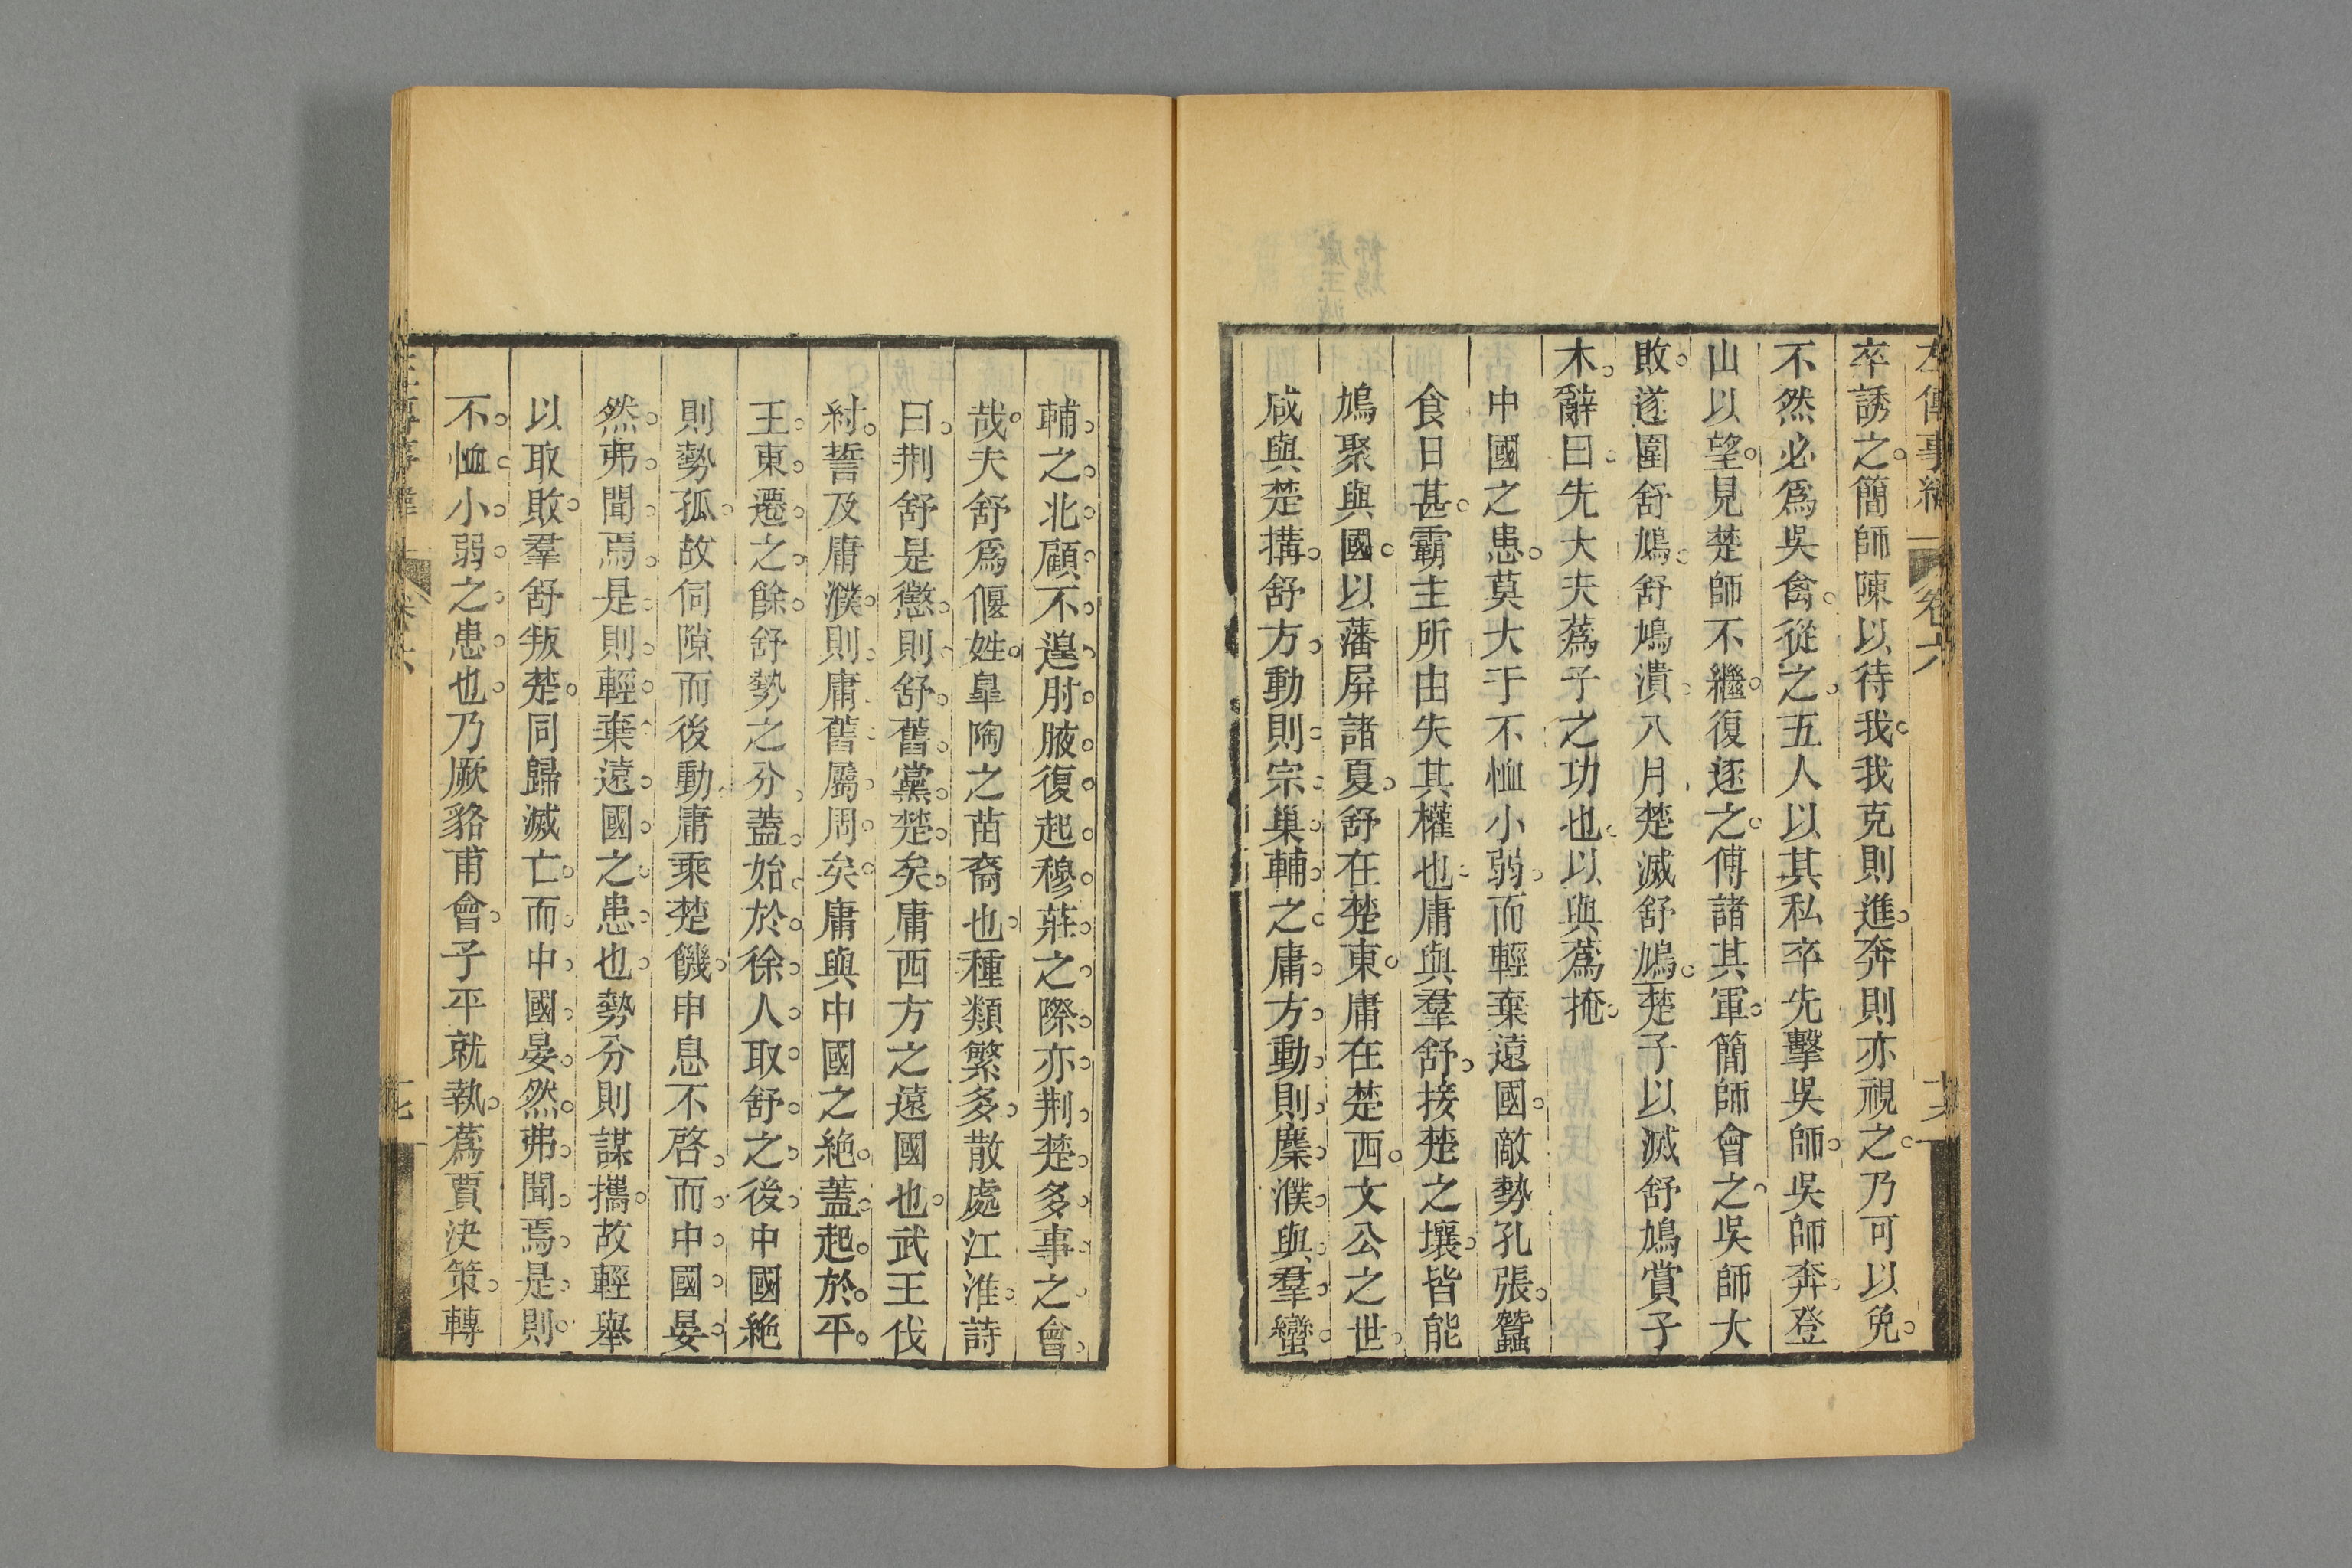 左傳事緯 卷六 十六
卒誘之簡師陳以待我我克則進奔則亦視之乃可以免
不然必爲吳禽從之五人以其私卒先擊吳師吳師奔登
山以望見楚師不繼復逐之傅諸其軍簡師會之吳師大
敗遂圍舒鳩舒鳩潰八月楚滅舒鳩楚子以滅舒鳩賞子
木辭曰先大夫蔿子之功也以與蔿掩
中國之患莫大于不恤小弱而輕棄遠國敵勢孔張蠶
食日甚霸主所由失其權也庸與羣舒接楚之壤皆能
鳩聚與國以藩屏諸夏舒在楚東庸在楚西文公之世
咸與楚搆舒方動則宗巢輔之庸方動則麇濮與羣蠻
輔之北顧不遑肘腋復起穆莊之際亦荆楚多事之會
哉夫舒爲偃姓臯陶之苗裔也種類繁多散處江淮詩
曰荆舒是懲則舒舊黨楚矣庸西方之遠國也武王伐
紂誓及庸濮則庸舊屬周矣庸與中國之絶蓋起於平
王東遷之餘舒勢之分蓋始於徐人取舒之後中國絶
則勢孤故伺隙而後動庸乘楚饑申息不啓而中國晏
然弗聞焉是則輕棄遠國之患也勢分則謀攜故輕舉
以取敗羣舒叛楚同歸滅亡而中國晏然弗聞焉是則
不恤小弱之患也乃厥貉甫會子平就執蔿賈決策轉
左傳事緯 卷六 十七